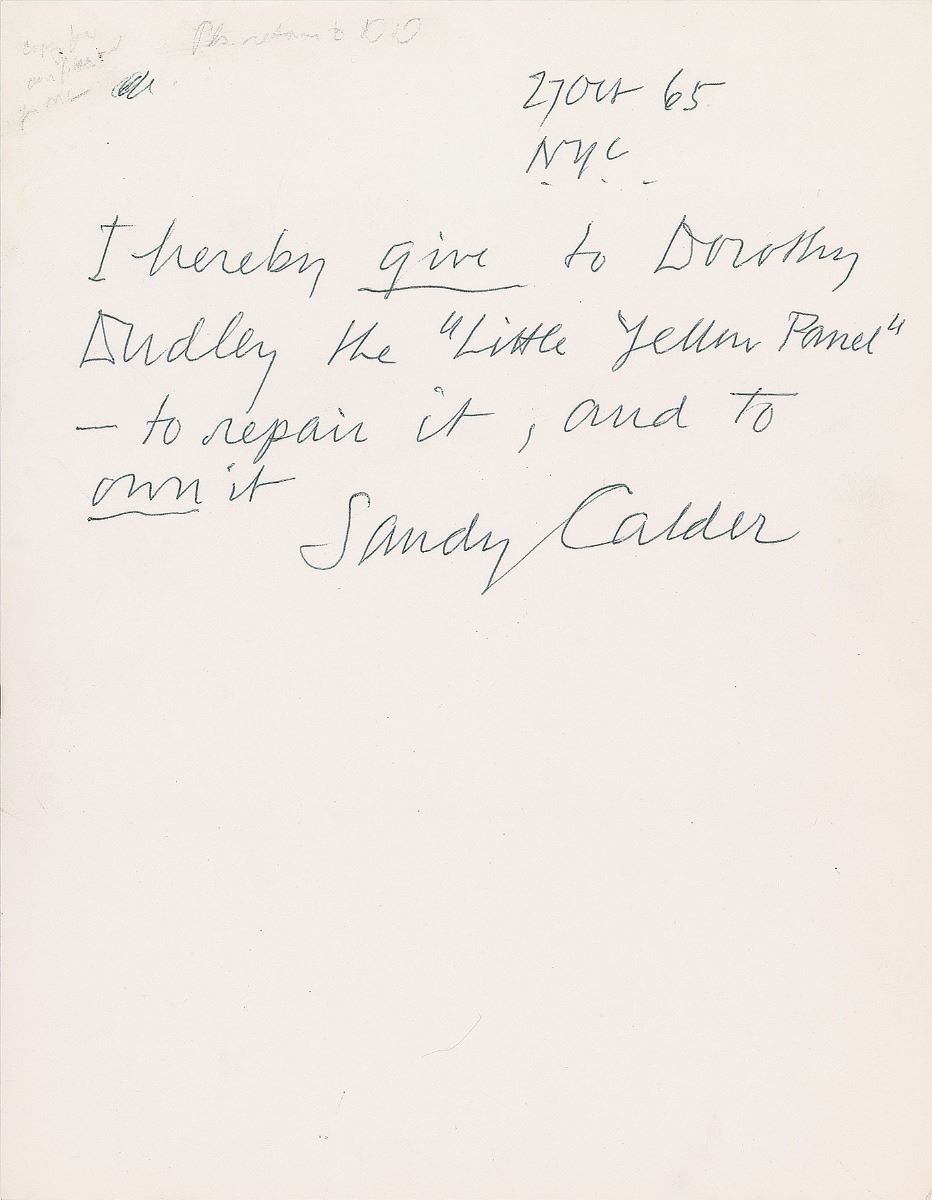 Pls. return to
27 Oct 65
NYC
I hereby give to Dorothy
Dudley the "Little Yellow Panel"
— to repair it, and to
own it
Sandy Calder